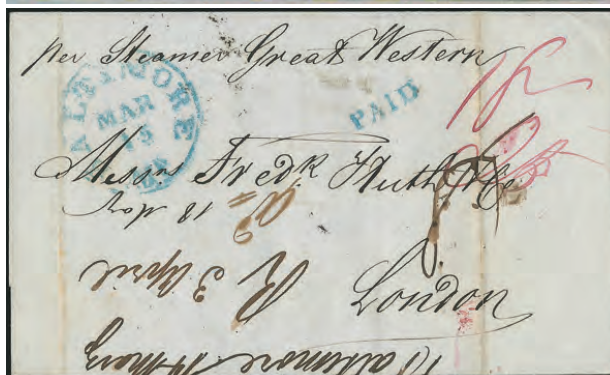 per Steamer Great Western
BALTIMORE
MAR
Md
PAID
Messrs Fredk Huth & Co
London
R 3 April
Baltimore 14 March